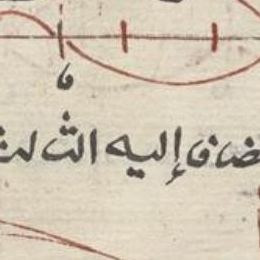 ضاف إليه الثالث